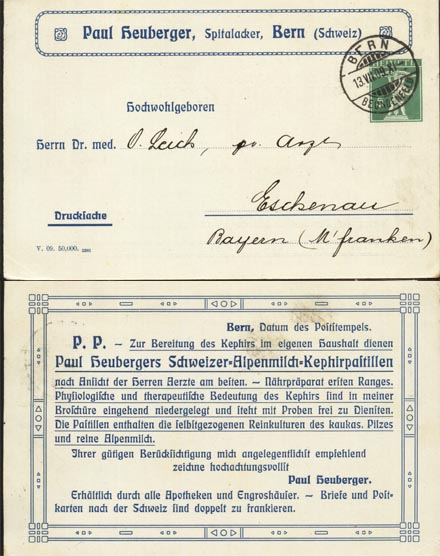 Paul Heuberger, Spitalacker, Bern (Schweiz)
BERN
Hochwohlgeboren
Herrn Dr. med. O. Leich, pr. Arzt
Eschenau
Drucksache
Bayern (M'franken)
V. 09. 50,000.
Bern, Datum des Poststempels.
P. P. – Zur Bereitung des Kephirs im eigenen Haushalt dienen
Paul Heubergers Schweizer-Alpenmilch-Kephirpastillen
nach Ansicht der Herren Aerzte am besten. – Nährpräparat ersten Ranges.
Physiologische und therapeutische Bedeutung des Kephirs sind in meiner
Broschüre eingehend niedergelegt und steht mit Proben frei zu Diensten.
Die Pastillen enthalten die selbstgezogenen Reinkulturen des kaukas. Pilzes
und reine Alpenmilch.
Ihrer gütigen Berücksichtigung mich angelegentlichst empfehlend
zeichne hochachtungsvollst
Paul Heuberger.
Erhältlich durch alle Apotheken und Engroshäuser. – Briefe und Post-
karten nach der Schweiz sind doppelt zu frankieren.